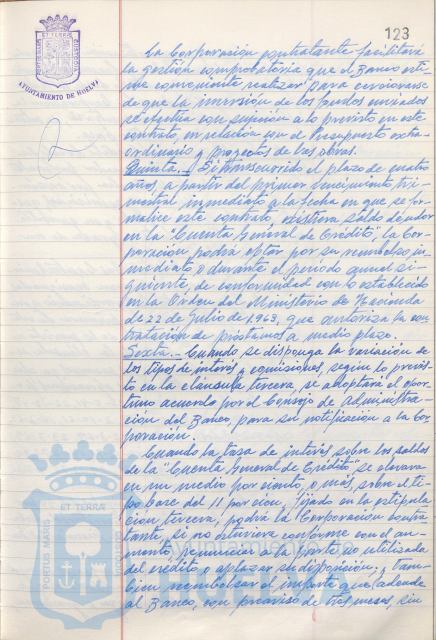 123
PORTUS MARIS ET TERRAE CUSTODIA
AYUNTAMIENTO DE HUELVA
La Corporación contratante facilitará
la gestión comprobatoria que el Banco esti-
me conveniente realizar para cerciorarse
de que la inversión de los fondos enviados
se efectúa con sujeción a lo previsto en este
contrato, en relación con el Presupuesto extra-
ordinario y proyectos de las obras.
Quinta.- Si transcurrido el plazo de cuatro
años, a partir del primer vencimiento tri-
mestral inmediato a la fecha en que se for-
malice este contrato, existiera saldo deudor
en la "Cuenta General de Crédito", la Cor-
poración podrá optar por su reembolso in-
mediato o durante el periodo anual si-
guiente, de conformidad con lo establecido
en la Orden del Ministerio de Hacienda
de 22 de Julio de 1963, que autoriza la con
tratación de préstamos a medio plazo.
Sexta.- Cuando se disponga la variación de
los tipos de interés y comisiones, según lo previs-
to en la cláusula tercera, se adoptará el opor-
tuno acuerdo por el Consejo de Administra-
ción del Banco, para su notificación a la Cor-
poración.
Cuando la tasa de interés sobre los saldos
de la "Cuenta General de Crédito" se elevara
en un medio por ciento, o más, sobre el ti-
po base del 11 por cien, fijado en la estipula
ción tercera, podrá la Corporación contra
tante, si no estuviera conforme con el au-
mento, renunciar a la parte no utilizada
del crédito o aplazar su disposición; y tam-
bien reembolsar el importe que adeude
al Banco, con preaviso de tres meses, sin
PORTUS MARIS ET TERRAE CUSTODIA
HUELVA